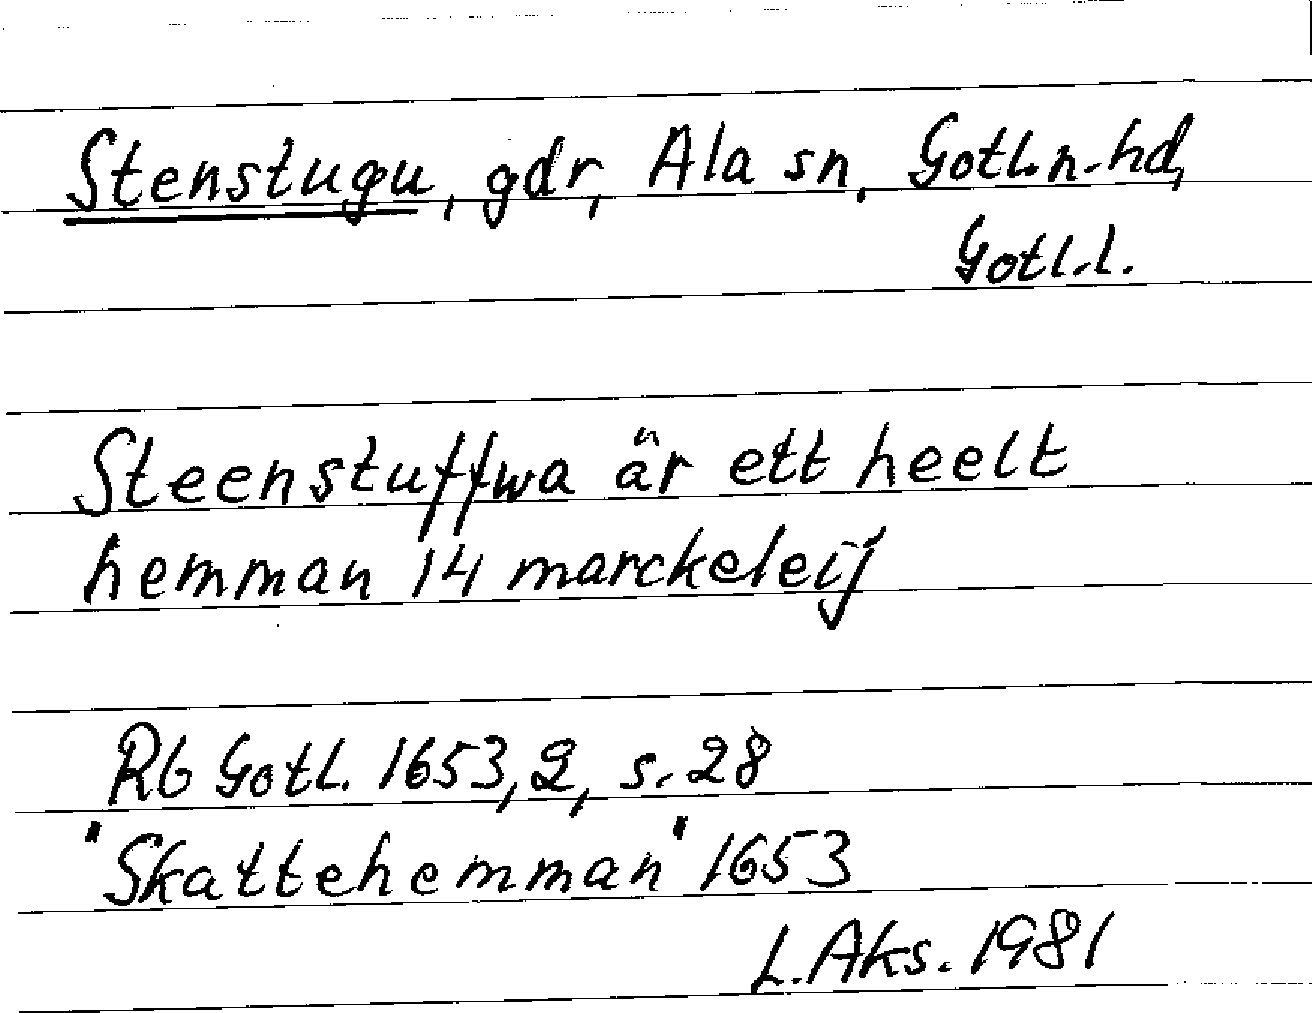 Stenstugu, gdr, Ala sn, Gotl.n.hd,
Gotl.l.
Steenstuffwa är ett heelt
hemman 14 marckeleij
Rb Gotl. 1653,2, s. 28
"Skattehemman" 1653
L.Aks. 1981